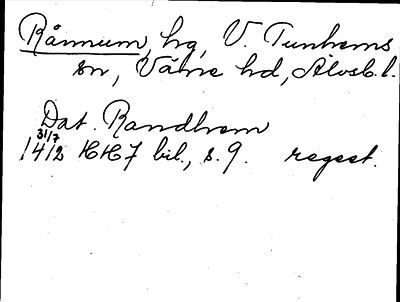 Rånnum, hg, V. Tunhems
sn, Väne hd, Älvsb. l.
Dat. Randhem
31/7
1412 HH 7 bil., s. 9. regest.